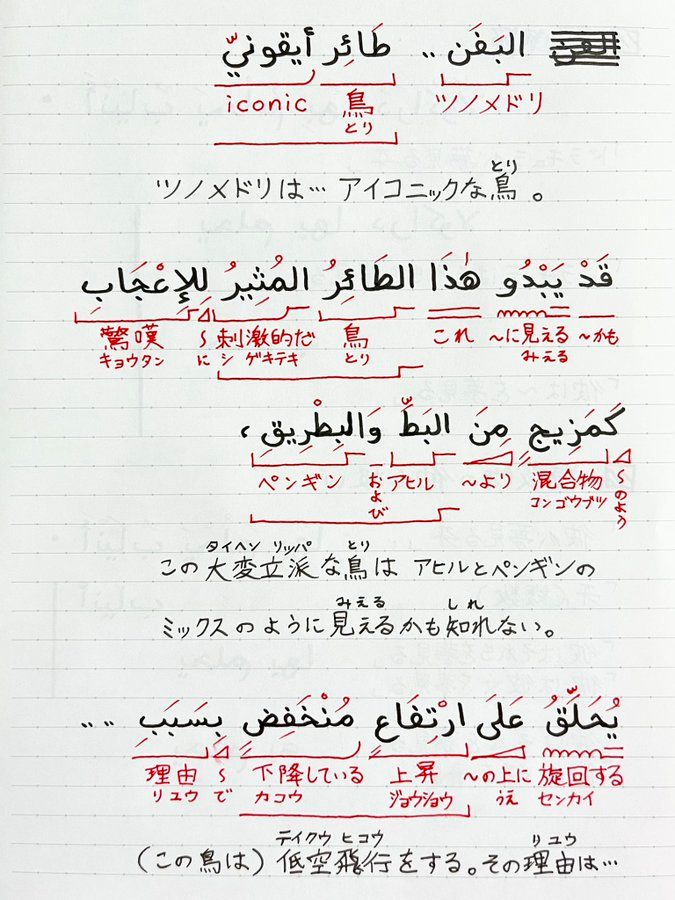 البَفَن .. طَائِر أيقونيّ
iconic 鳥 ツノメドリ
とり
とり
ツノメドリは… アイコニックな鳥。
قَدْ يَبْدُو هٰذَا الطَائِرُ المُثِيرُ لِلإعْجَابِ
驚嘆 〜に 刺激的だ 鳥 これ 〜に見える 〜かも
キョウタン シゲキテキ とり みえる
كَمَزِيجٍ مِنَ البَطِّ وَالبِطْرِيقِ ،
ペンギン および アヒル 〜より 混合物 〜のよう
コンゴウブツ
タイヘン リッパ とり
この大変立派な鳥は アヒルとペンギンの
みえる しれ
ミックスのように見えるかも知れない。
يُحَلِّقُ عَلَى ارْتِفَاعٍ مُنْخَفِضٍ بِسَبَبِ ....
理由 〜で 下降している 上昇 〜の上に 旋回する
リユウ カコウ ジョウショウ うえ センカイ
テイクウ ヒコウ リユウ
(この鳥は) 低空飛行をする。その理由は…